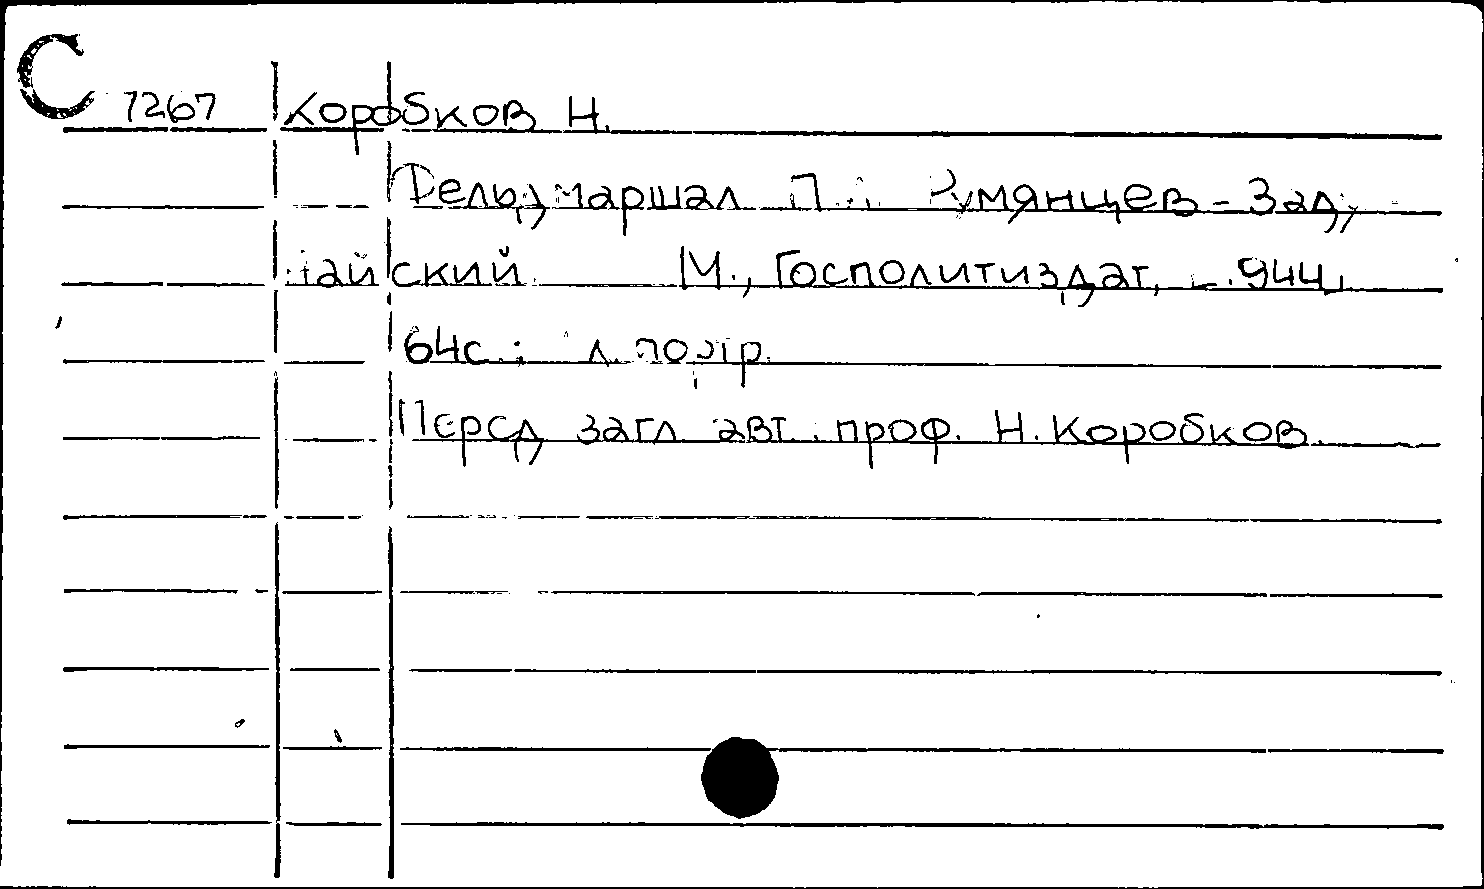 С 7267 Коробков Н.
Фельдмаршал П. Румянцев-Заду-
найский. М., Госполитиздат, 1944,
64с.; л. портр.
Перед загл. авт.: проф. Н. Коробков.